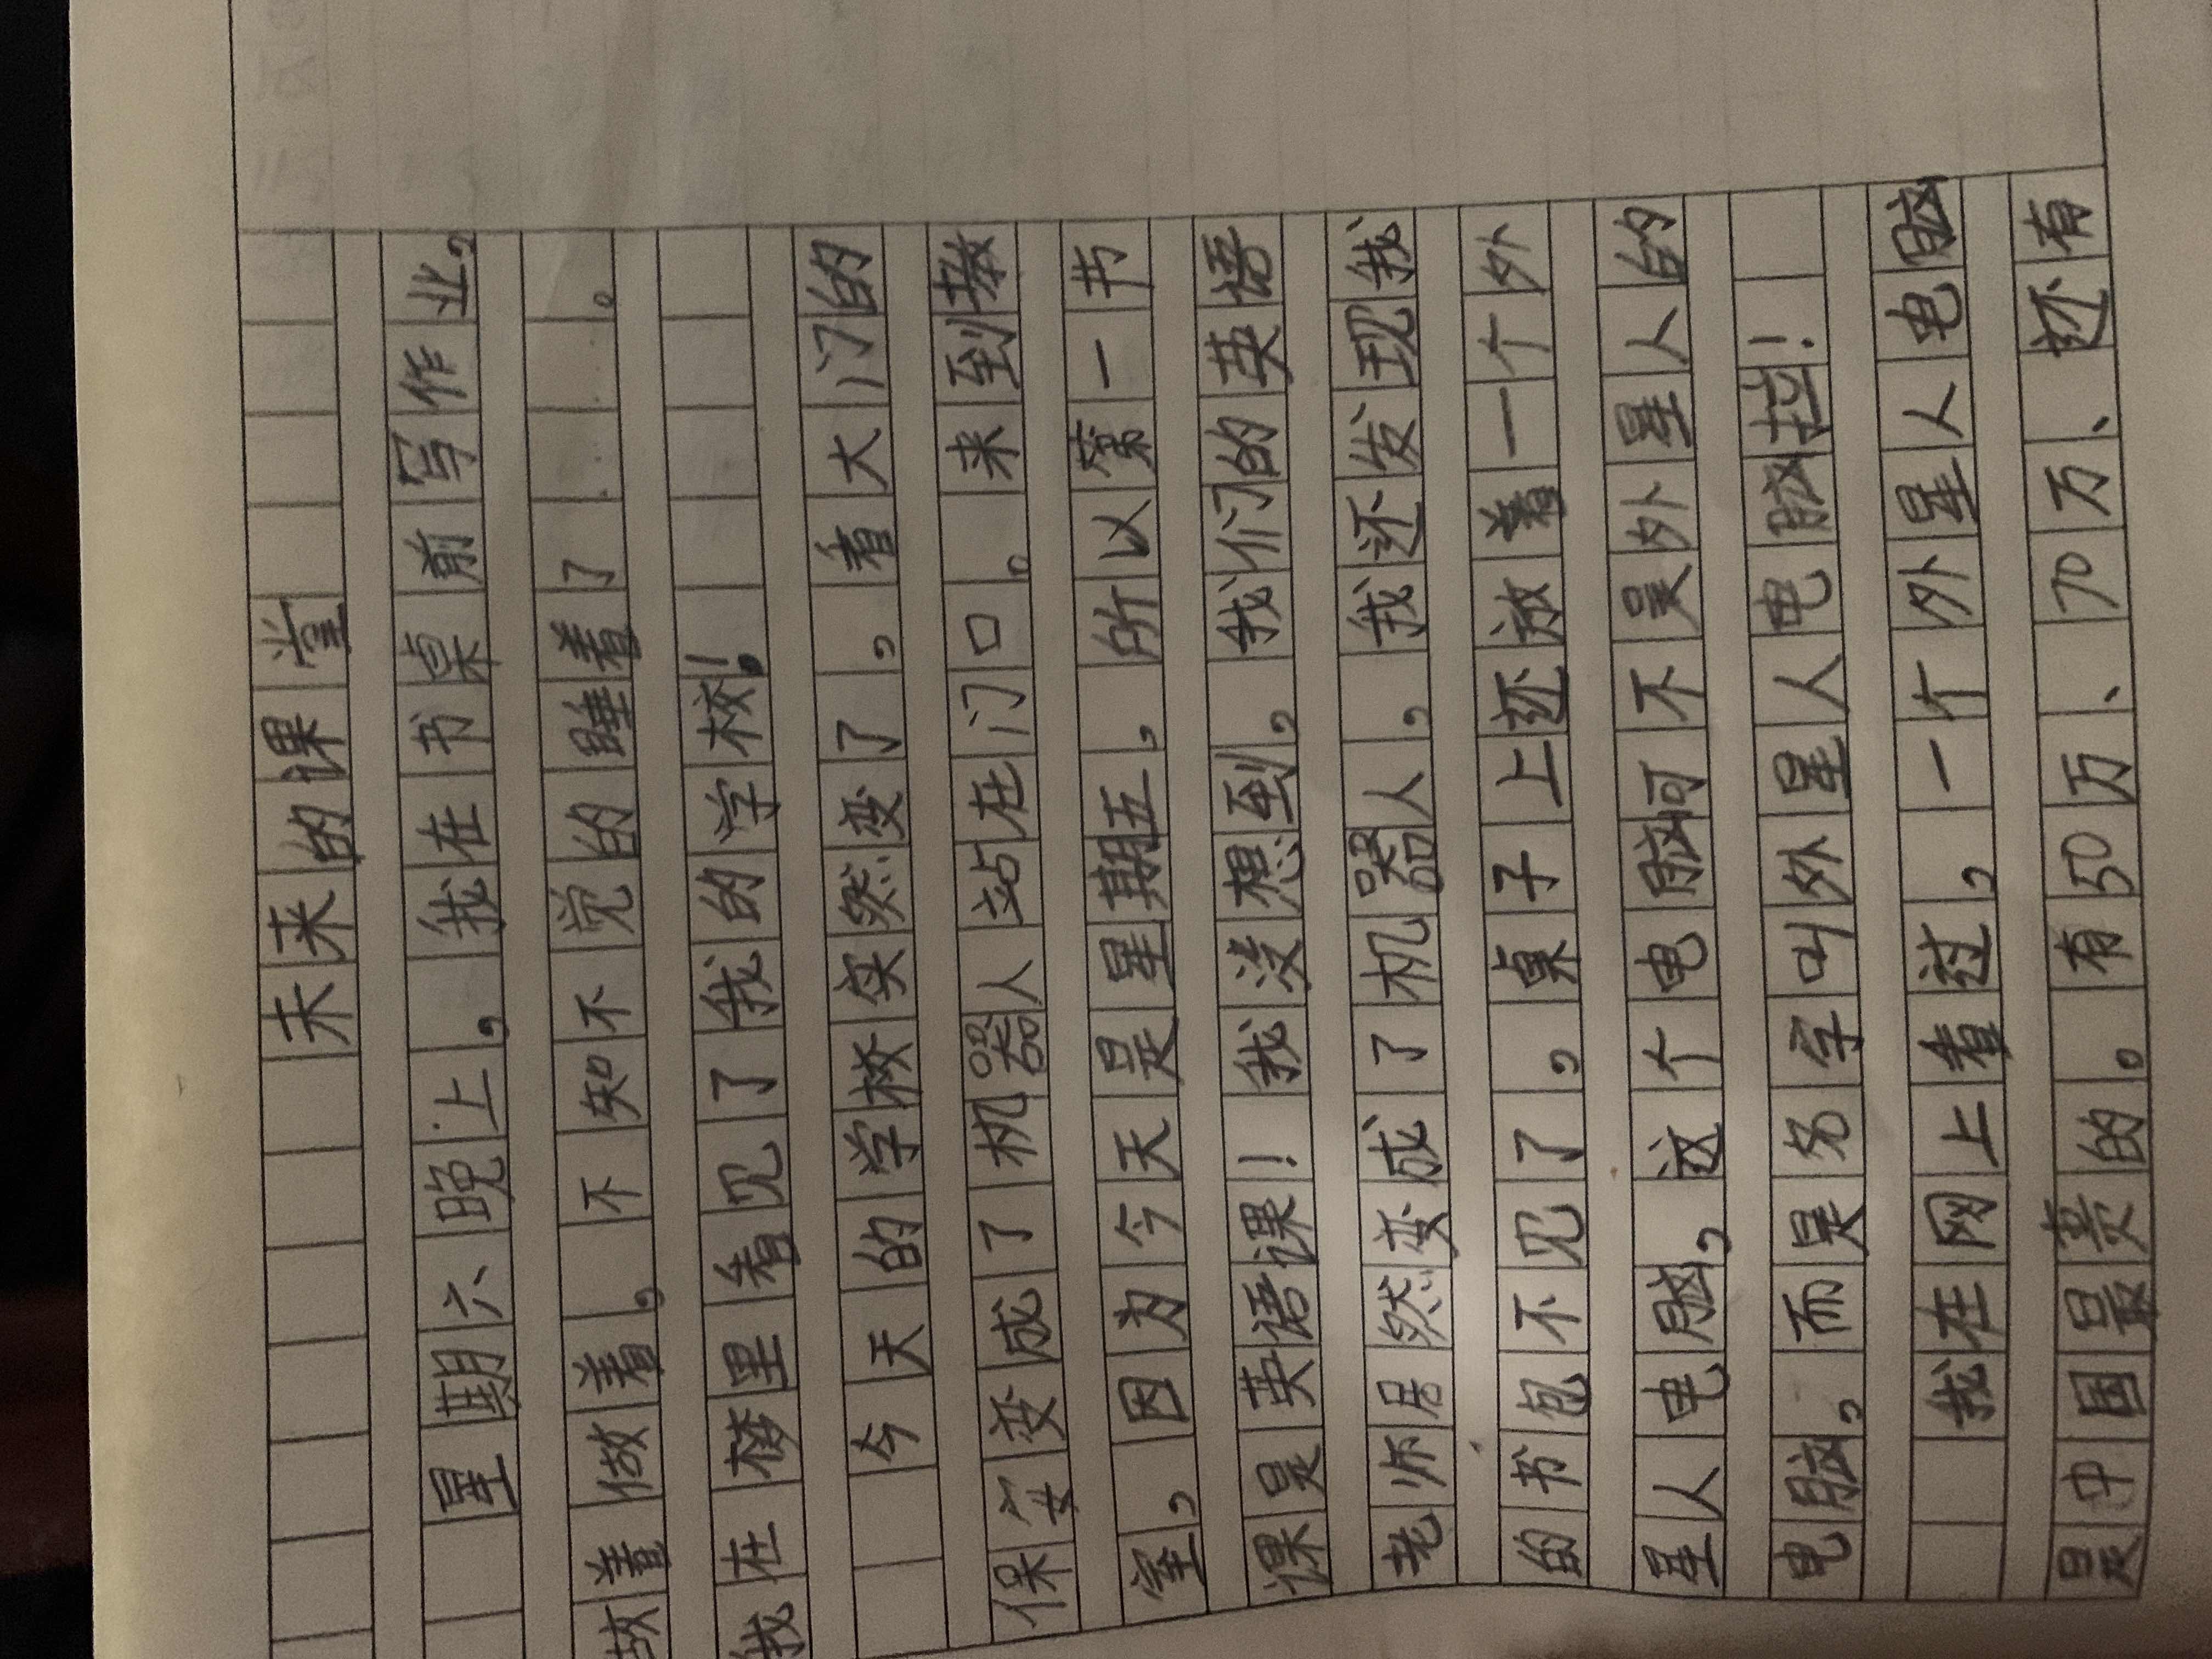 未来的课堂
星期六晚上，我在书桌前写作业，
做着做着，不知不觉的睡着了......。
我在梦里看见了我的学校！
今天的学校突然变了，看大门的
保安变成了机器人站在门口。来到教
室，因为今天是星期五，所以第一节
课是英语课！我没想到，我们的英语
老师居然变成了机器人，我还发现我
的书包不见了，桌子上还放着一个外
星人电脑，这个电脑可不是外星人的
电脑，而是名字叫外星人电脑拉！
我在网上看过，一个外星人电脑
是中国最贵的。有50万、70万、还有